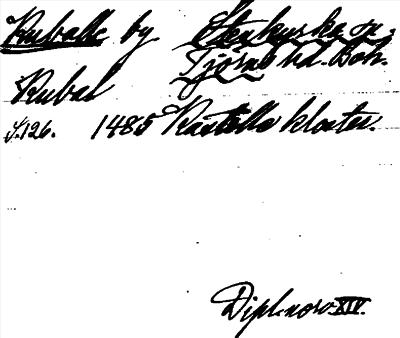 Kuballe by. Stenkyrka sn.
Tjörns hd. Boh.
Kubal
S.126. 1485 Kastelle kloster.
Dipl. norv. XIV.